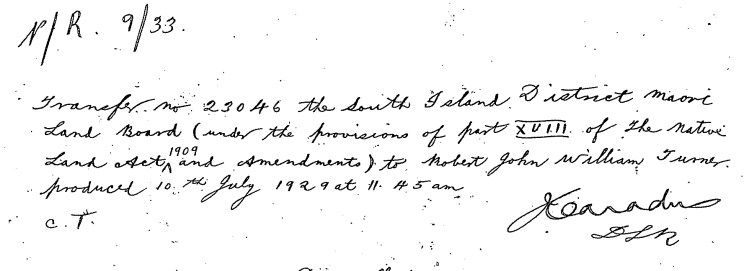 N/R. 9/33.
Transfer no 23046 the South Island District Maori
Land Board (under the provisions of part XVIII. of The Native
Land Act, 1909 and Amendments) to Robert John William Turner
produced 10th July 1929 at 11.45 am
C.T.
DLR